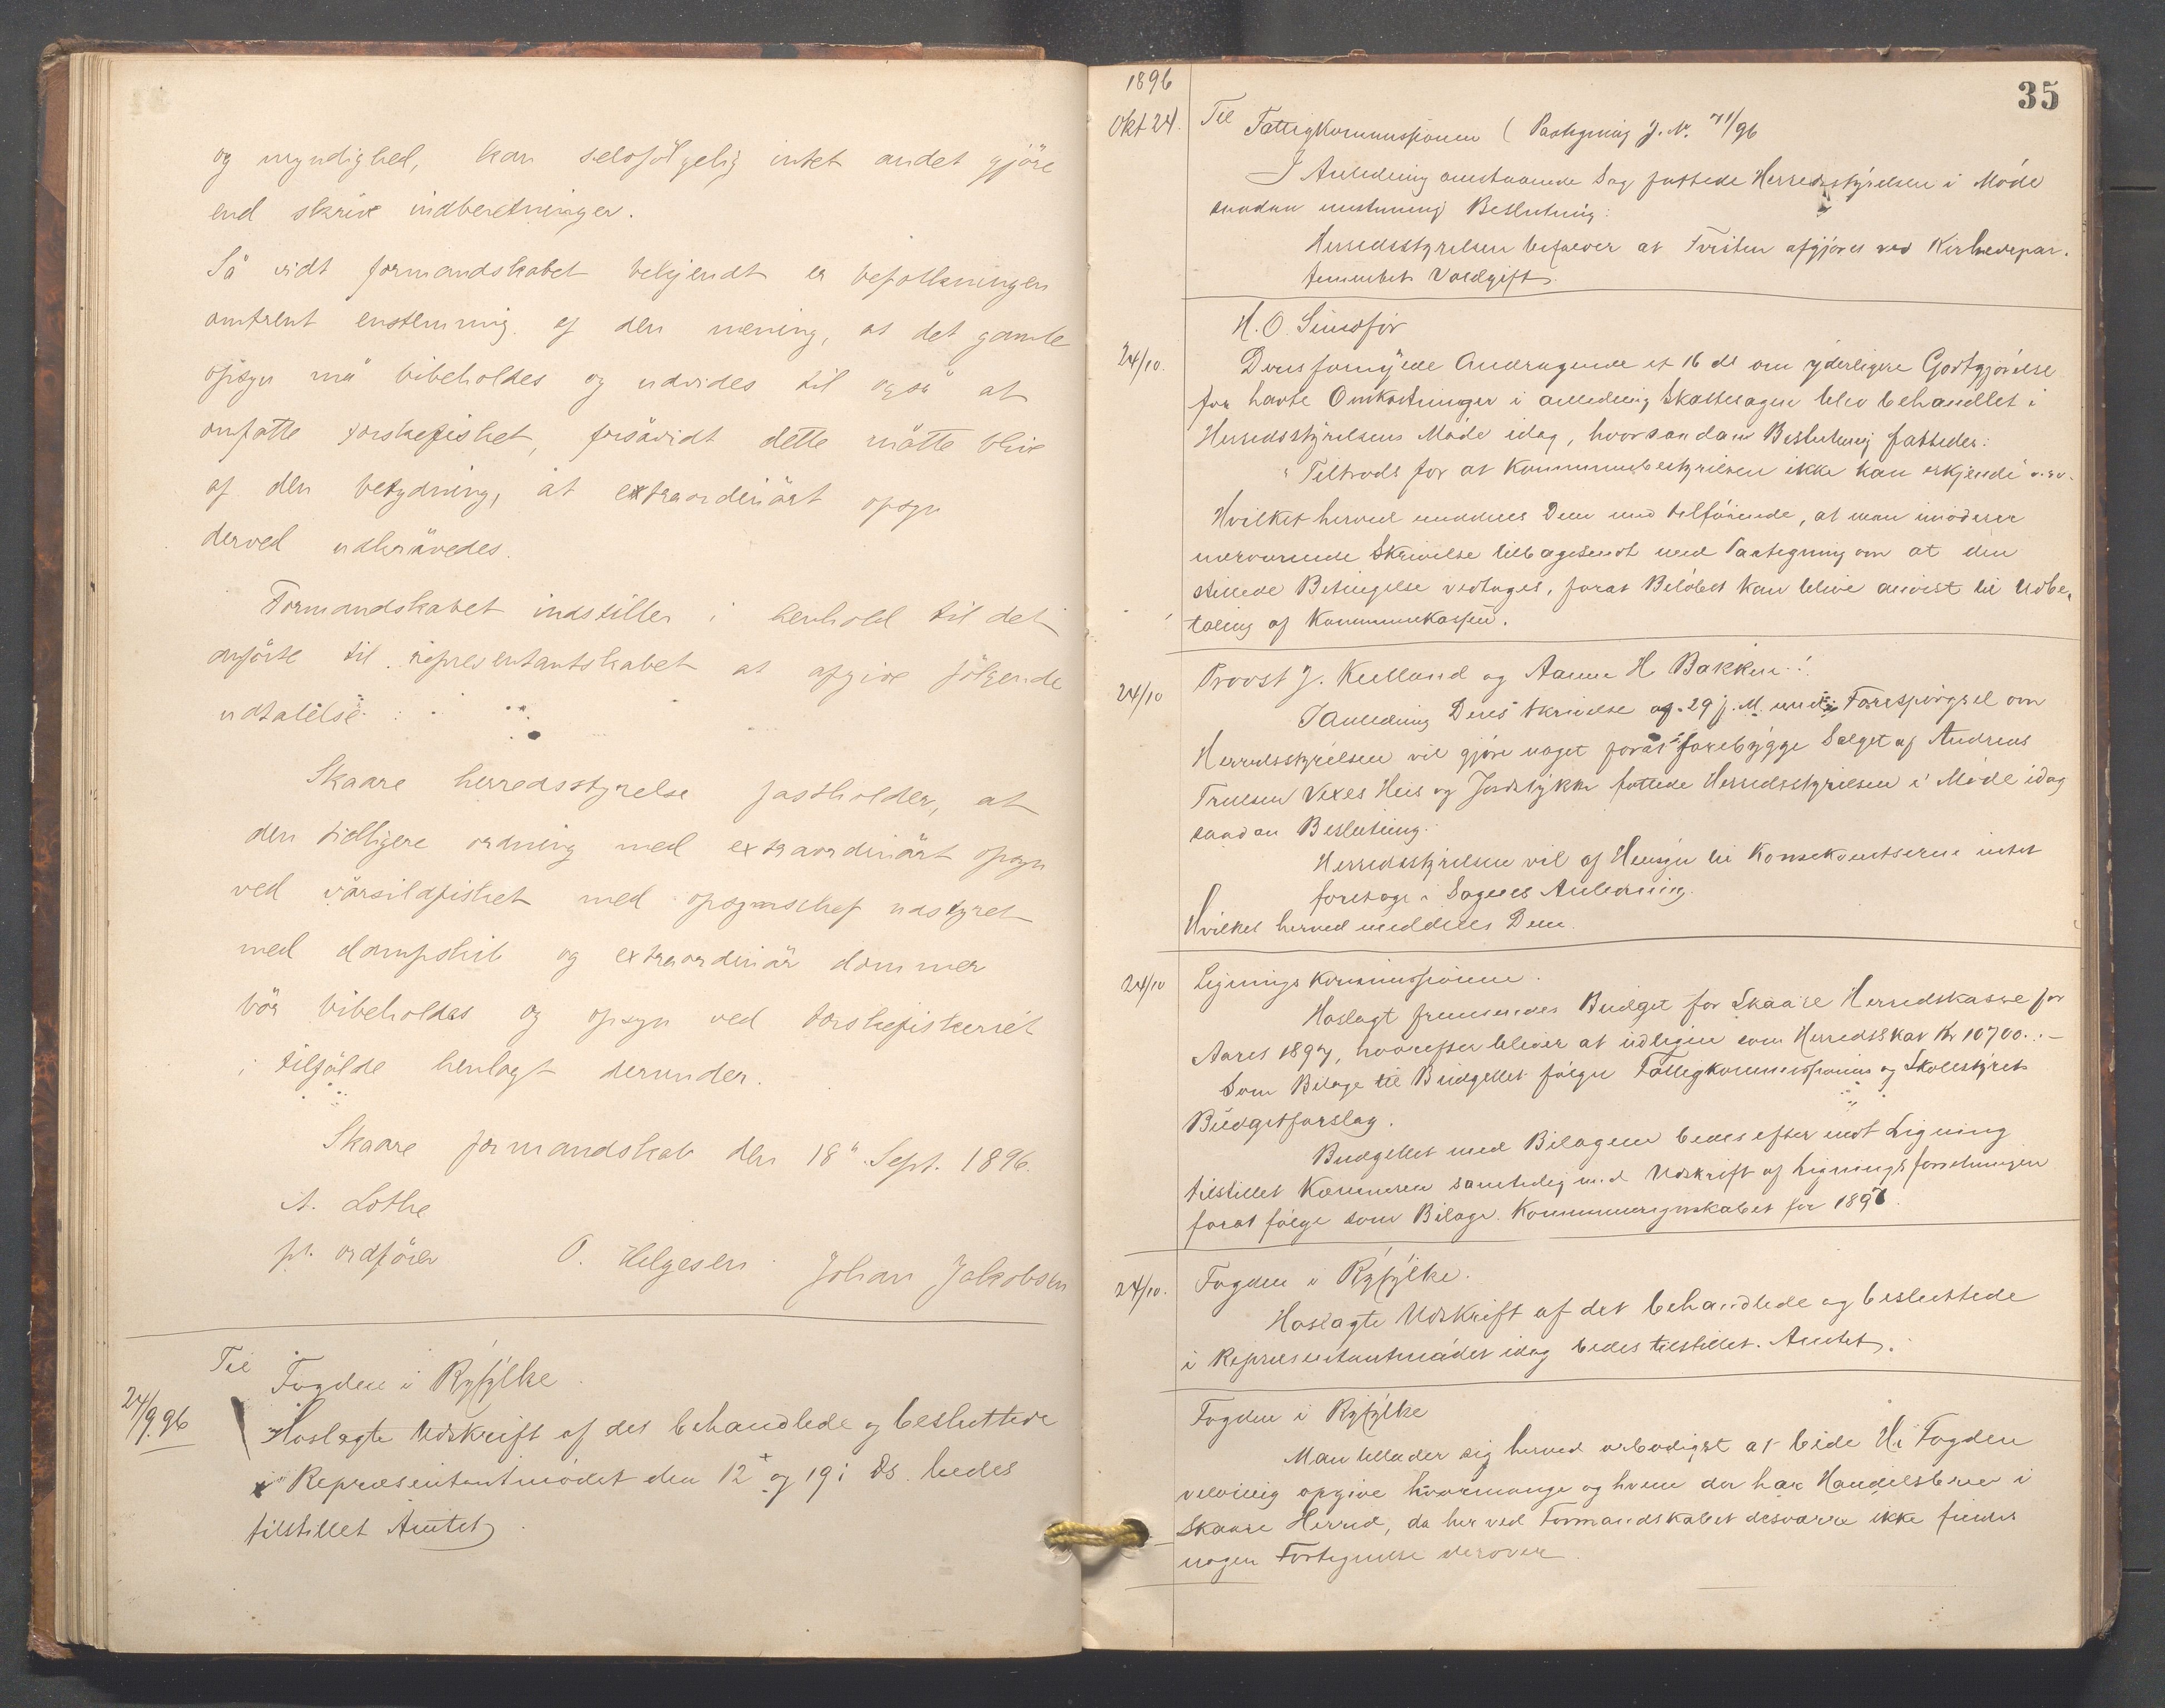 og myndighed, kan selvfölgelig intet andet gjöre
end skrive indberetninger.
Så vidt formandskabet bekjendt er befolkningen
omtrent enstemmig af den mening, at det gamle
opsyn må bibeholdes og udvides til også at
omfatte torskefisket, forsåvidt dette måtte blive
af den betydning, at extraordinärt opsyn
derved udkrävedes.
Formandskabet indstiller i henhold til det
anförte til representantskabet at afgive fölgende
udtalelse:
Skaare herredsstyrelse fastholder, at
den tidligere ordning med extraordinärt opsyn
ved vårsildfisket med opsynschef udstyret
med dampskib og extraordinär dommer
bör bibeholdes og opsyn ved torskefiskeriet
i tilfälde henlagt derunder.
Skaare formandskab den 18" Sept. 1896.
A. Lothe
fr. ordförer O. Helgesen Johan Jakobsen
Til
Fogden i Ryfylke
24/9.96 Hoslagte Udskrift af det behandlede og besluttede
i Repræsentantmödet den 12 og 19 ds. bedes
tilstillet Amtet
35
1896
Okt 24. Til Fattigkommissionen (Paategning J. Nr. 71/96
I Anledning omstaaende Sag fattede Herredsstyrelsen i Möde
saadan enstemmig Beslutning:
Herredsstyrelsen at Tvisten afgjöres ved Kirkedepar-
tementets Voldgift.
H. O.
24/10. Deres fornyede Andragende af 16 ds om yderligere Godtgjörelse
for havte Omkostninger i anledning Skattesagen blev behandlet i
Herredsstyrelsens Möde idag, hvor saadan Beslutning fattedes:
"Tiltrods for at Kommunebestyrelsen ikke kan erkjende o.s.v.
Hvilket herved meddeles Dem med tilföiende, at man imödeser
nærværende Skrivelse tilbagesendt med Paategning om at den
stillede Betingelse vedtages, forat Belöbet kan blive anvist til Udbe-
taling af Kommunekassen.
24/10 Provst J. Kielland og Aanen H Bakken!
I Anledning Deres Skrivelse af 29 f. M. med Forespörgsel om
Herredsstyrelsen vil gjöre noget forat forebygge Salget af Andreas
Truelsen Vexes Hus og Jordstykke fattede Herredsstyrelsen i Möde idag
saadan Beslutning:
Herredsstyrelsen vil af Hensyn til Konsekventserne intet
foretage i Sagens Anledning.
Hvilket herved meddeles Dem.
24/10 Ligningskommissionen.
Hoslagt fremsendes Budget for Skaare Herredskasse for
Aaret 1897, hvorefter bliver at udligne som Herredsskat Kr 10700.-
Som Bilage til Budgettet fölger Fattigkommissionens og Skolestyrets
Budgetforslag.
Budgettet med Bilagene bedes efter endt Ligning
tilstillet Kæmneren samtidig med Udskrift af Ligningsforretningen
forat fölge som Bilage Kommuneregnskabet for 1897.
24/10. Fogden i Ryfylke.
Hoslagte Udskrift af det behandlede og besluttede
i Repræsentantmödet idag bedes tilstillet Amtet.
Fogden i Ryfylke
Man tillader sig herved ærbödigst at bede Hr Fogden
velvillig opgive hvormange og hvem der har Handelsbrev i
Skaare Herred, da her ved Formandskabet desværre ikke findes
nogen Fortegnelse derover.